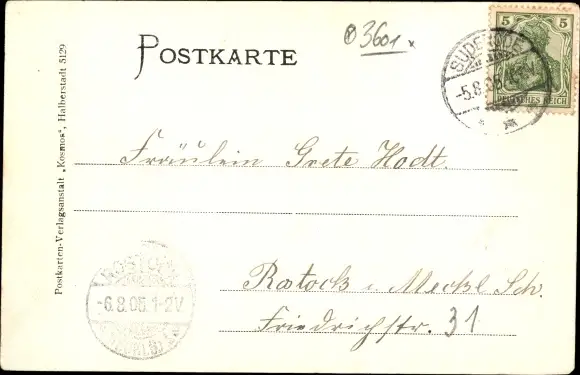 POSTKARTE
3601
5 5
DEUTSCHES REICH
SUDERODE
-5.8.05
Fräulein Grete Hodt.
Rostock i. Meckl. Sch.
Friedrichstr. 31
ROSTOCK
-6.8.05.1-2V
Postkarten-Verlagsanstalt „Kosmos", Halberstadt 5129